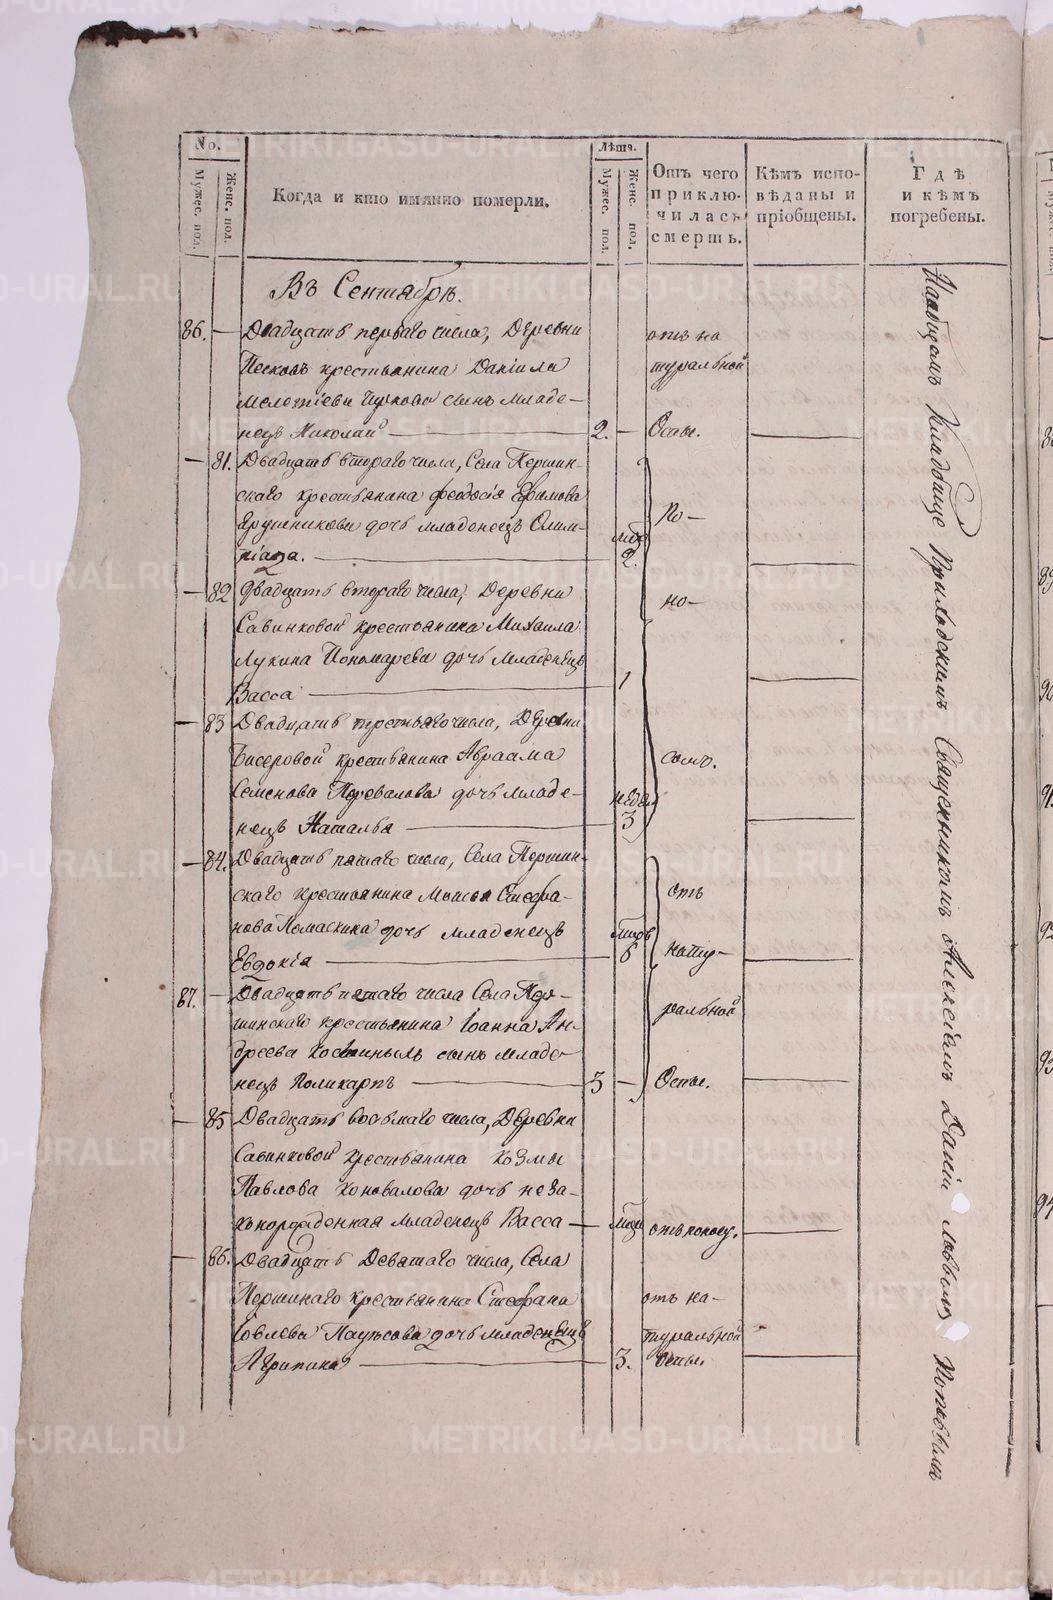 No.
Мужес. пол.
Женс. пол.
Когда и кто имянно померли.
Лѣта.
Мужес. пол.
Женс. пол.
Отъ чего приключилась смерть.
Кѣмъ исповѣданы и пріобщены.
Гдѣ и кѣмъ погребены.
Въ Сентябрѣ.
86. — Двадцать перваго числа, Деревни
Песковъ крестьянина Даніила
сынъ младе-
нецъ Николай — 2. —
отъ на
туральной
Оспы.
— 81. Двадцать втораго числа, Села Першин-
скаго крестьянина Феодосія Ефимова
дочь младенецъ Олим-
піада. — 2.
— 82 Двадцать втораго числа, Деревни
Савинковой крестьянина Михаила
Лукина Пономарева дочь младенецъ
Васса — 1
— 83 Двадцать третьяго числа, Деревни
Бисеровой крестьянина Авраама
Семенова Перевалова дочь младе-
нецъ Наталья — недел 3
По-
но-
сомъ.
— 84. Двадцать пятаго числа, Села Першин-
скаго крестьянина Моисея Стефа-
нова дочь младенецъ
Евдокія — 6
87. — Двадцать пятаго числа Села Пер-
шинскаго крестьянина Іоанна Ан-
дреева сынъ младе-
нецъ Поликарпъ — 3 —
отъ
нату-
ральной
Оспы.
— 85 Двадцать восьмаго числа, Деревни
Савинковой крестьянина Козмы
Павлова Коновалова дочь неза-
конорожденная младенецъ Васса —
отъ поносу.
— 86. Двадцать Девятаго числа, Села
Першинаго крестьянина Стефана
Іовлева дочь младенецъ
Агрипина — 3.
отъ на-
туральной
оспы.
На общемъ Кладбище Приходскимъ Священникомъ Алексіемъ Поповымъ
METRIKI.GASO-URAL.RU